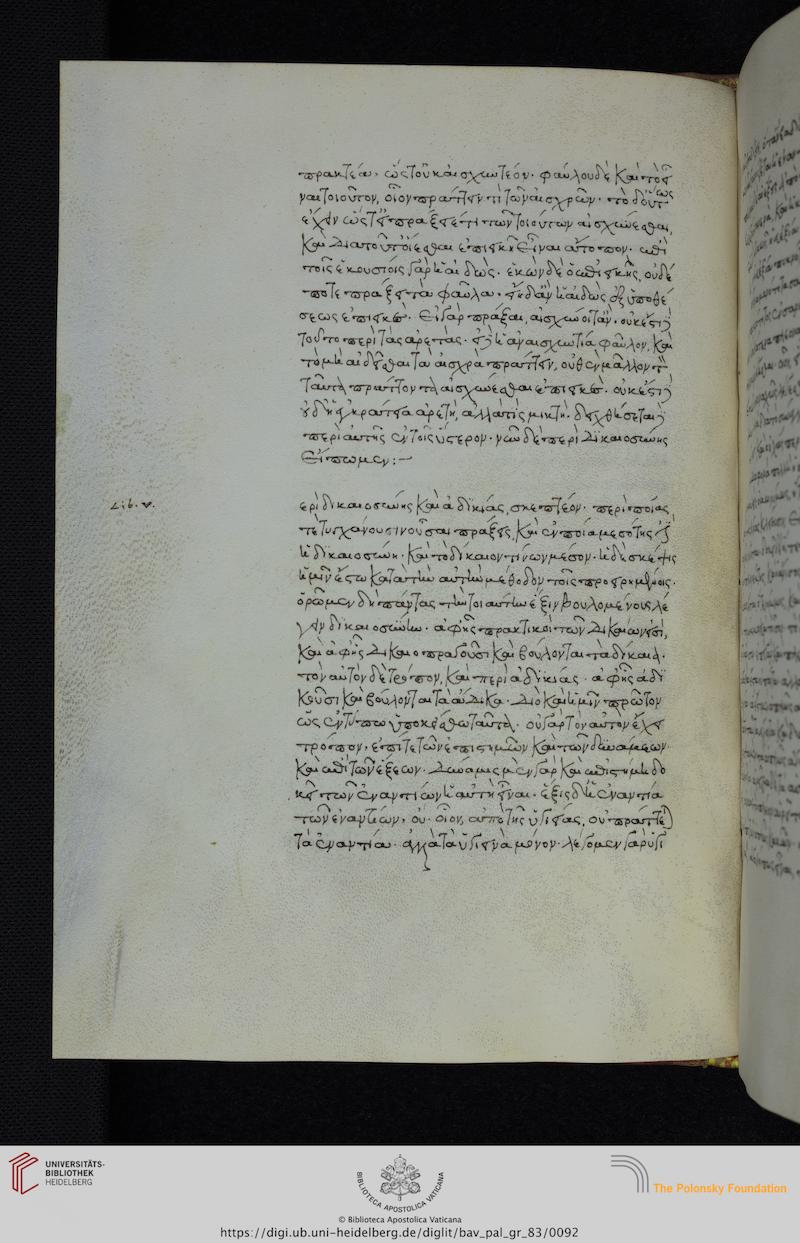 πρακτέα, ὥστ' οὐκ αἰσχυντέον. φαύλου δὲ καὶ τὸ εἶ
ναι τοιοῦτον, οἷον πράττειν τι τῶν αἰσχρῶν. τὸ δ' οὕτως
ἔχειν ὥστ' εἰ πράξειέ τι τῶν τοιούτων αἰσχύνεσθαι,
καὶ διὰ τοῦτ' οἴεσθαι ἐπιεικῆ εἶναι ἄτοπον. ἐπὶ
τοῖς ἑκουσίοις γὰρ ἡ αἰδώς. ἑκὼν δὲ ὁ ἐπιεικὴς, οὐδέ
ποτε πράξει τὰ φαῦλα. εἴη δ' ἂν ἡ αἰδὼς ἐξ ὑποθέ
σεως ἐπιεικές. εἰ γὰρ πράξαι, αἰσχύνοιτ' ἄν. οὐκ ἔστι
τοῦτο περὶ τὰς ἀρετάς. εἰ δ' ἡ ἀναισχυντία φαῦλον, καὶ
τὸ μὴ αἰδεῖσθαι τὰ αἰσχρὰ πράττειν, οὐθὲν μᾶλλον τὸν
ταῦτα πράττοντα αἰσχύνεσθαι ἐπιεικές. οὐκ ἔστι
δ' οὐδ' ἡ ἐγκράτεια ἀρετὴ, ἀλλά τις μικτή. δειχθήσεται
περὶ αὐτῆς ἐν τοῖς ὕστερον. νῦν δὲ περὶ δικαιοσύνης
εἴπωμεν:
Lib. V.
ερὶ δικαιοσύνης καὶ ἀδικίας, σκεπτέον. περὶ ποίας
τε τυγχάνουσιν οὖσαι πράξεις, καὶ ἐν ποία μεσότης ἐστὶν
ἡ δικαιοσύνη. καὶ τὸ δίκαιον τίνων μέσον. ἡ δὲ σκέψις
ἡμῖν ἔστω κατὰ τὴν αὐτὴν μέθοδον τοῖς προειρημένοις.
ὁρῶμεν δὴ πάντας τὴν τοιαύτην ἕξιν βουλομένους λέ
γειν δικαιοσύνην. ἀφ' ἧς πρακτικοὶ τῶν δικαίων εἰσὶ,
καὶ ἀφ' ἧς δικαιοπραγοῦσι καὶ βούλονται τὰ δίκαια.
τὸν αὐτὸν δὲ τρόπον, καὶ περὶ ἀδικίας. ἀφ' ἧς ἀδι
κοῦσι καὶ βούλονται τὰ ἄδικα. διὸ καὶ ἡμῖν πρῶτον
ὡς ἐν τύπω ὑποκείσθω ταῦτα. οὐ γὰρ τὸν αὐτὸν ἔχει
τρόπον, ἐπί τε τῶν ἐπιστημῶν καὶ τῶν δυνάμεων.
καὶ ἐπὶ τῶν ἕξεων. δύναμις μὲν γὰρ καὶ ἐπιστήμη δο
κεῖ τῶν ἐναντίων ἡ αὐτὴ εἶναι. ἕξις δ' ἡ ἐναντία
τῶν ἐναντίων, οὔ. οἷον, ἀπὸ τῆς ὑγιείας, οὐ πράττεται
τὰ ἐναντία. ἀλλὰ τὰ ὑγιεινὰ μόνον. λέγομεν γὰρ ὑγι
UNIVERSITÄTS-
BIBLIOTHEK
HEIDELBERG
BIBLIOTECA APOSTOLICA VATICANA
The Polonsky Foundation
© Biblioteca Apostolica Vaticana
https://digi.ub.uni-heidelberg.de/diglit/bav_pal_gr_83/0092